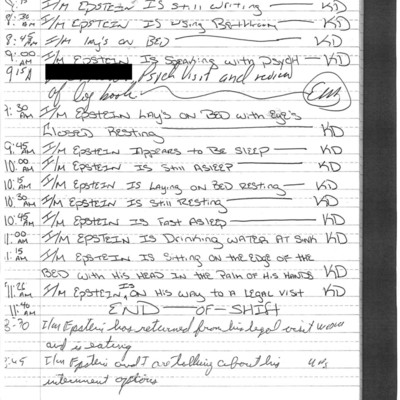 I/M EPSTEIN IS Still Writing — KD
8:30 AM I/M EPSTEIN IS Using Bathroom — KD
8:45 AM I/M lay's on BED — KD
9:00 AM I/M EPSTEIN IS Speaking with Psych — KD
9:15A Psych Visit and review
of log book
9:30 AM I/M EPSTEIN LAY'S ON BED with Eye's
Closed Resting — KD
9:45 AM I/M EPSTEIN Appears to BE SLEEP — KD
10:00 AM I/M EPSTEIN IS Still ASLEEP — KD
10:15 AM I/M EPSTEIN IS Laying on BED Resting — KD
10:30 AM I/M EPSTEIN IS Still Resting — KD
10:45 AM I/M EPSTEIN IS FAST ASLEEP — KD
11:00 AM I/M EPSTEIN IS Drinking WATER AT SINK KD
11:15 AM I/M EPSTEIN IS Sitting on the EDGE OF the
BED with HIS HEAD IN the PALM OF HIS HANDS KD
11:26 AM I/M EPSTEIN, IS ON HIS WAY to A LEGAL VISIT KD
11:40 AM END — OF — SHIFT
I/m Epstein has returned from his legal visit
and is eating
:45 I/m Epstein and I are talking about his
internment options